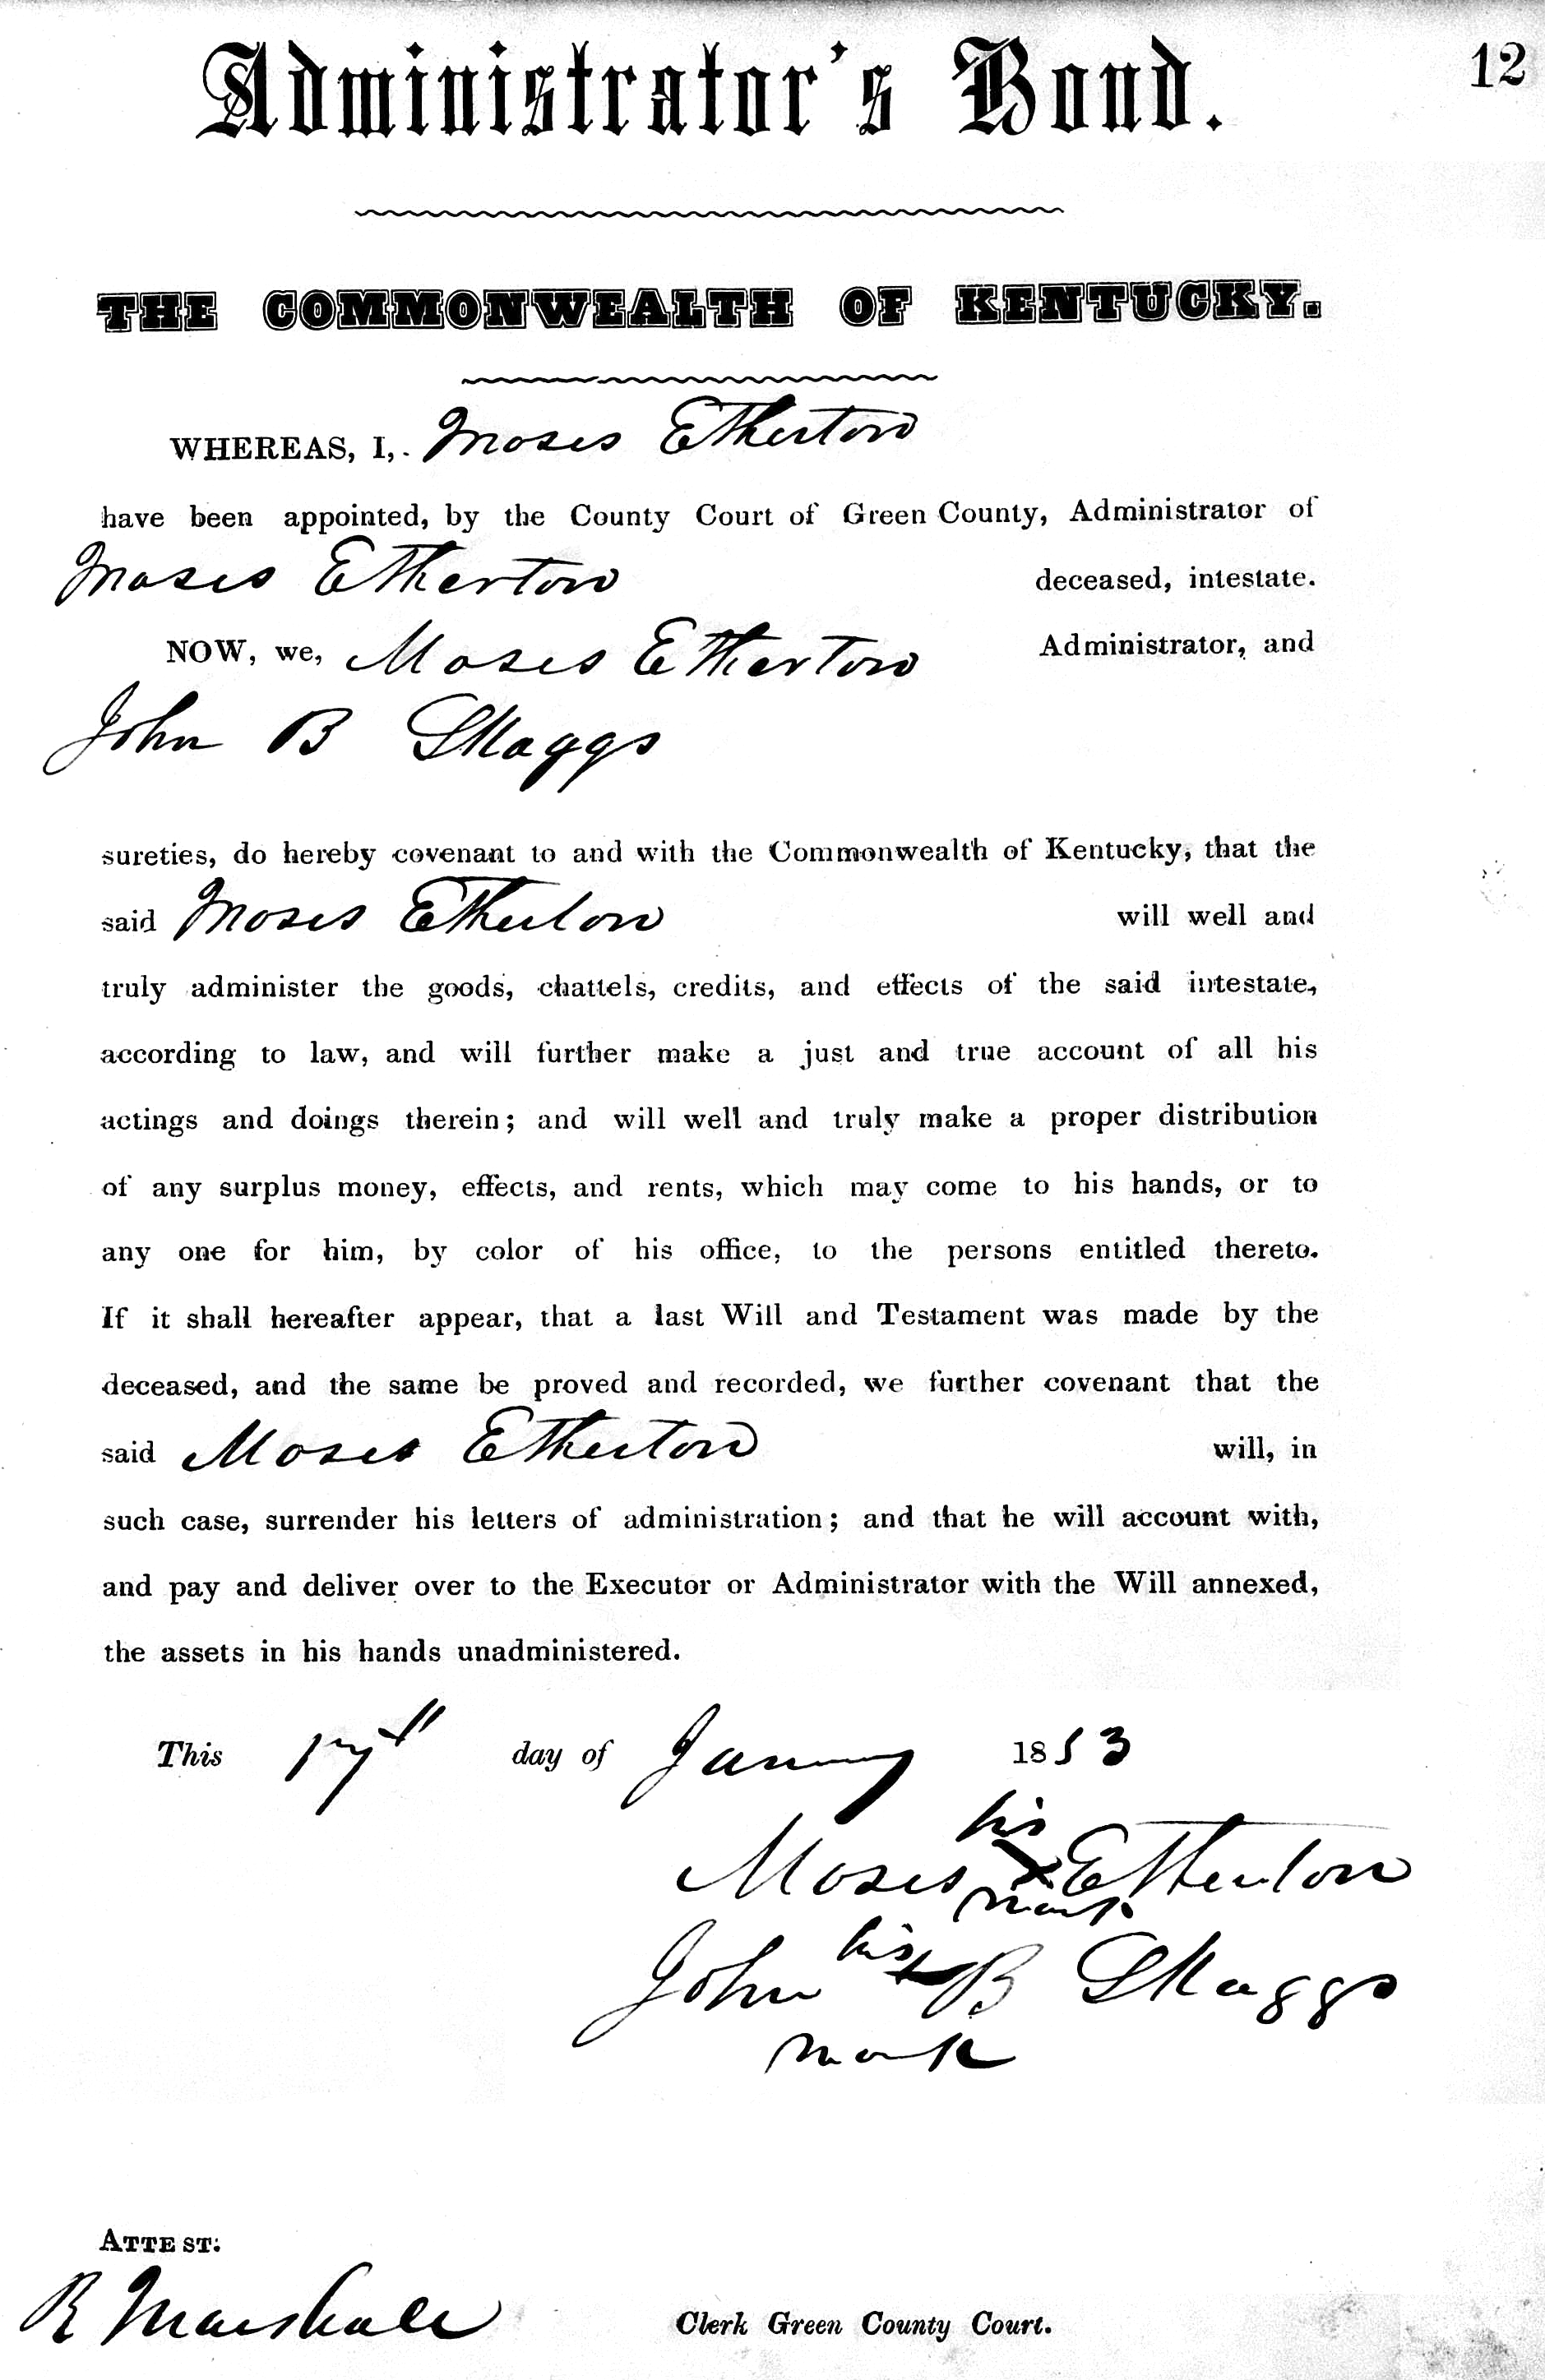 12
Administrator's Bond.
THE COMMONWEALTH OF KENTUCKY.
WHEREAS, I, Moses Etherton
have been appointed, by the County Court of Green County, Administrator of
Moses Etherton deceased, intestate.
NOW, we, Moses Etherton Administrator, and
John B Skaggs
sureties, do hereby covenant to and with the Commonwealth of Kentucky, that the
said Moses Etherton will well and
truly administer the goods, chattels, credits, and effects of the said intestate,
according to law, and will further make a just and true account of all his
actings and doings therein; and will well and truly make a proper distribution
of any surplus money, effects, and rents, which may come to his hands, or to
any one for him, by color of his office, to the persons entitled thereto.
If it shall hereafter appear, that a last Will and Testament was made by the
deceased, and the same be proved and recorded, we further covenant that the
said Moses Etherton will, in
such case, surrender his letters of administration; and that he will account with,
and pay and deliver over to the Executor or Administrator with the Will annexed,
the assets in his hands unadministered.
This 17th day of January 1853
his
Moses X Etherton
mark
his
John X B Skaggs
mark
ATTEST:
R Marshall Clerk Green County Court.